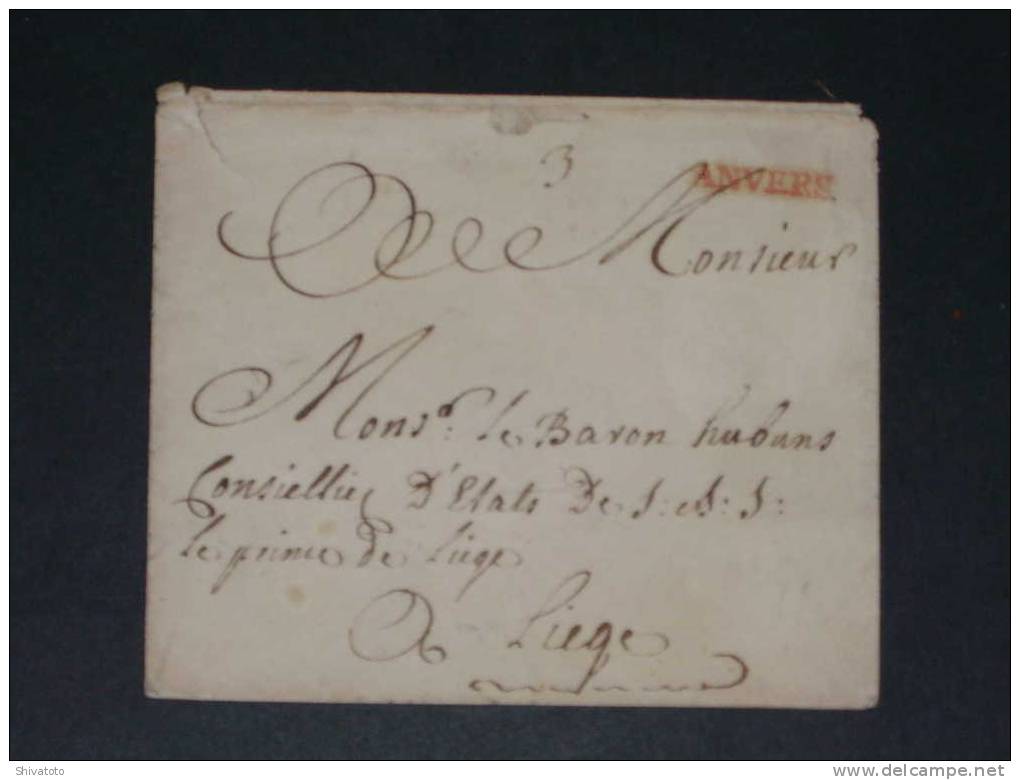 3
ANVERS
A Monsieur
Monsr: le Baron
Consiellie D'Etats De S: A: S:
le prince de Liege
A Liege
Shivatoto
delcampe.net